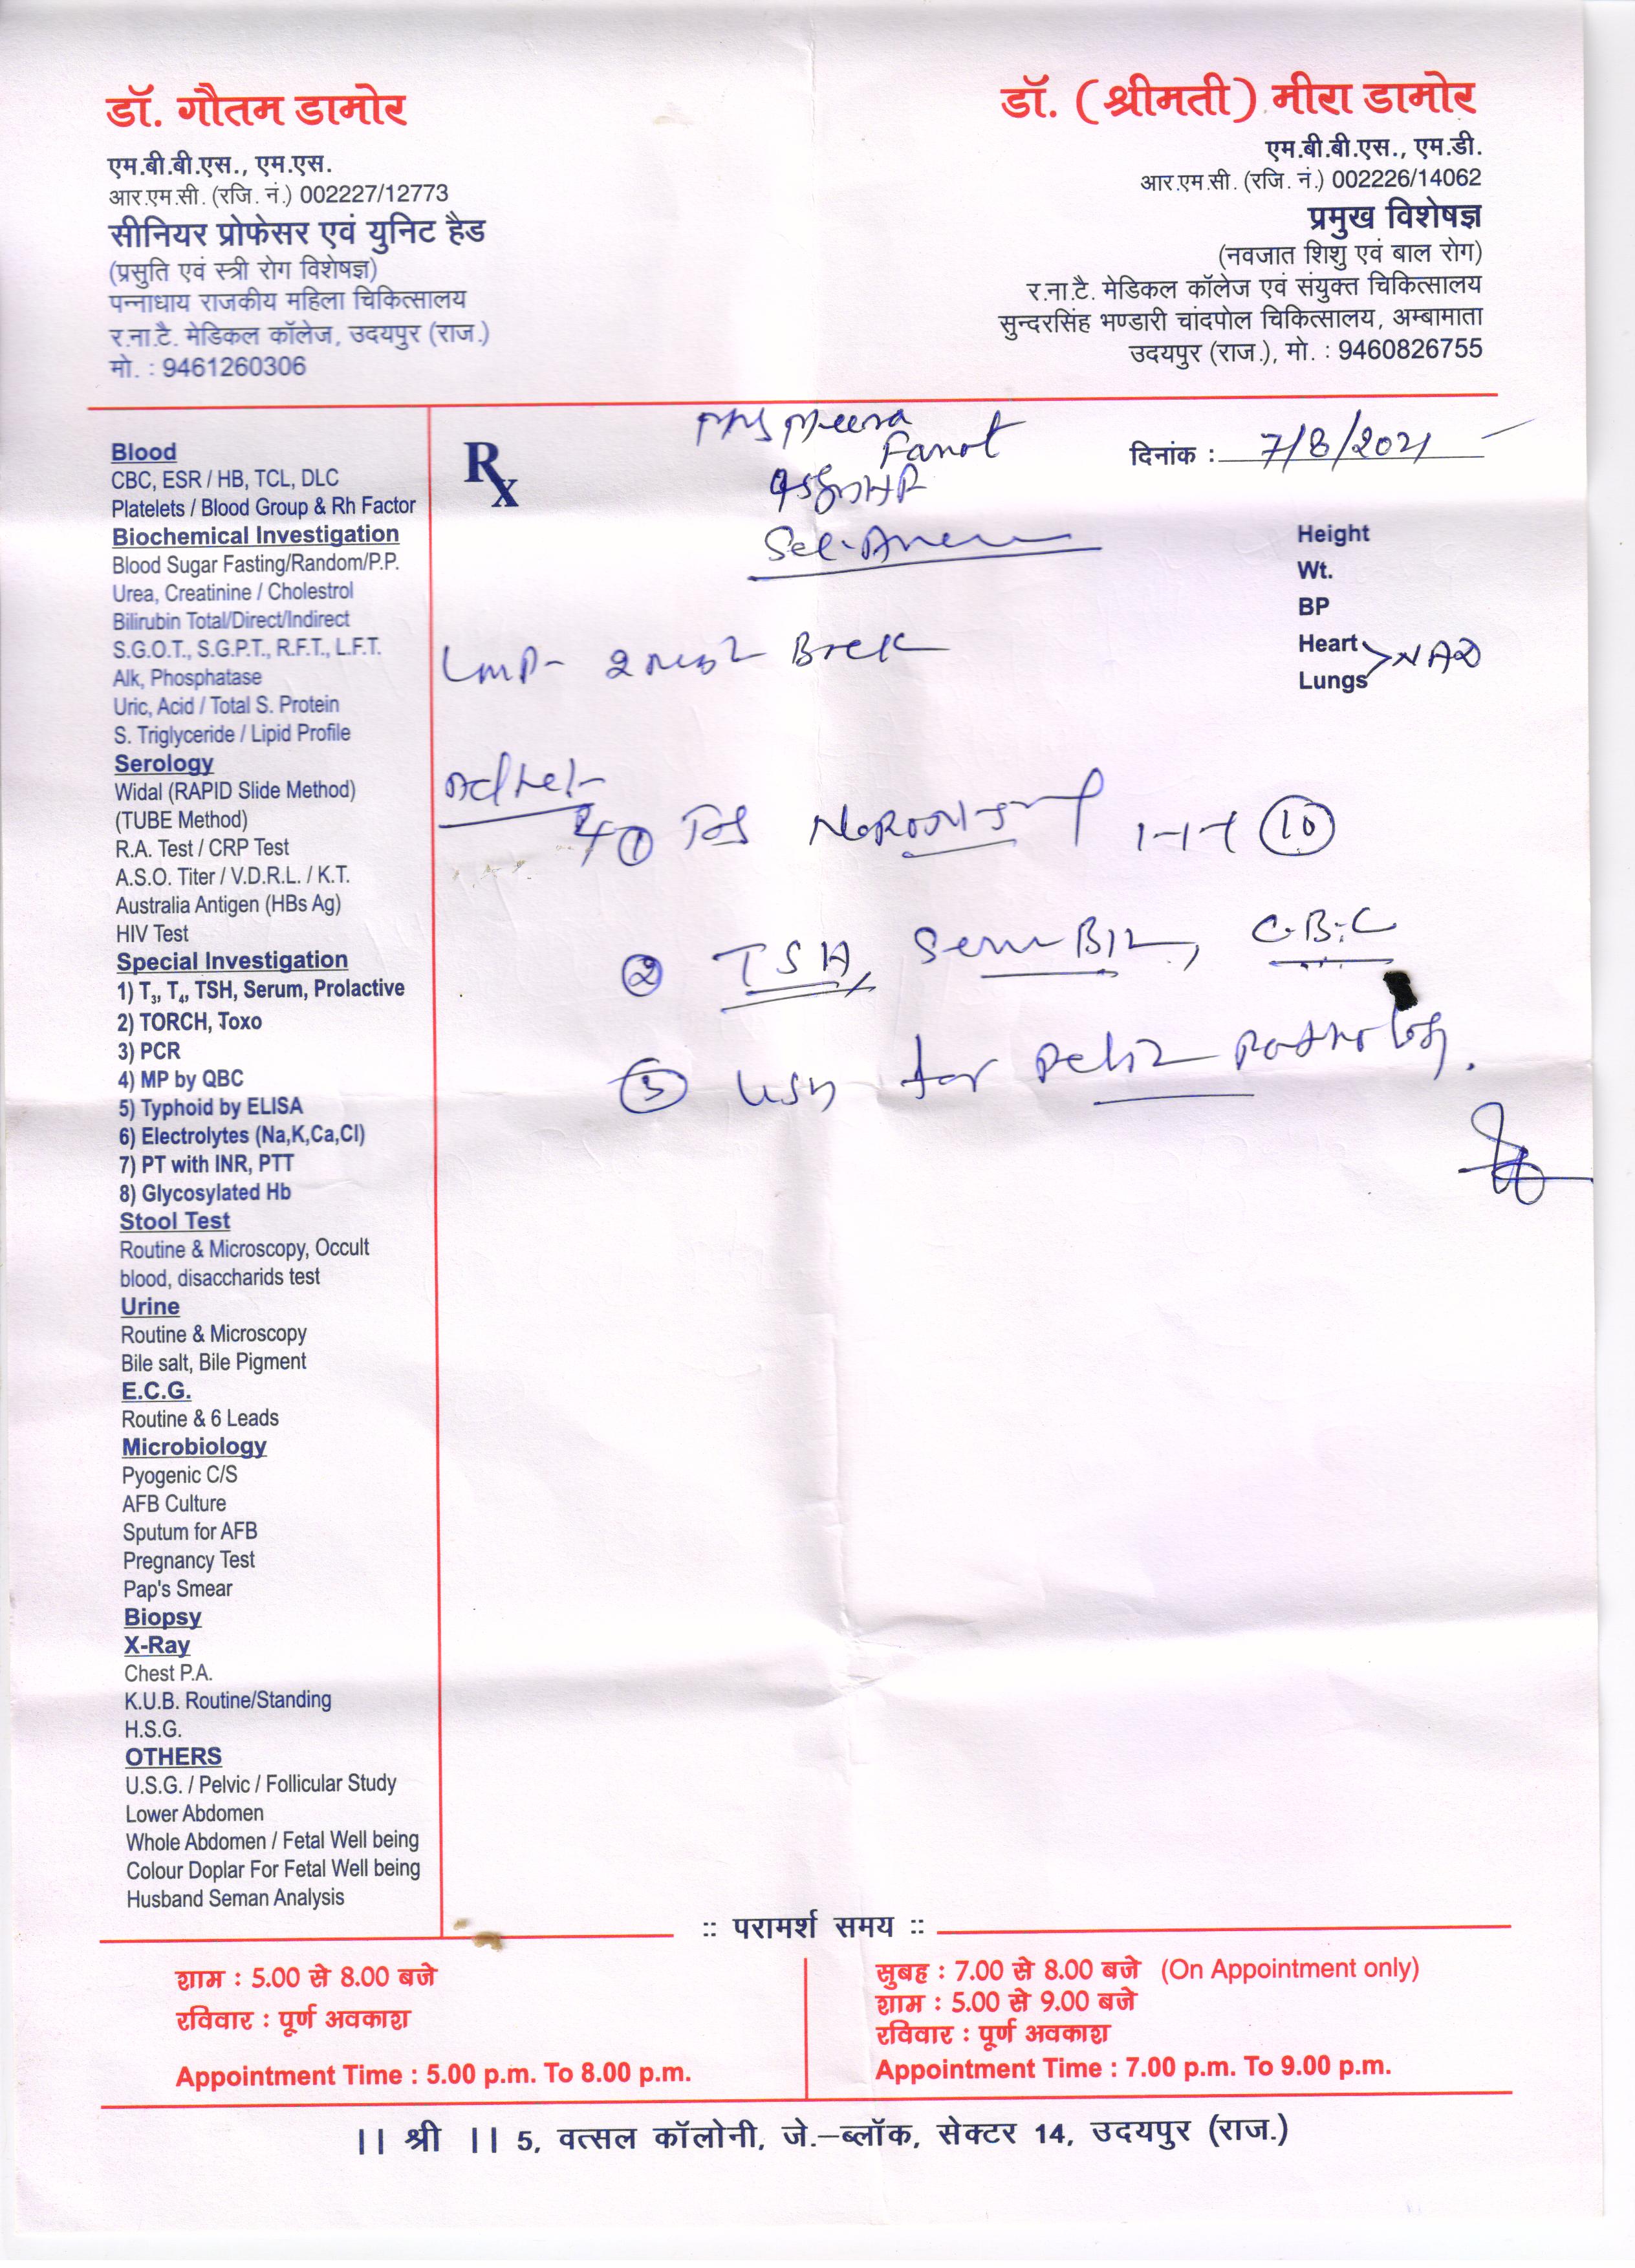 डॉ. गौतम डामोर
एम.बी.बी.एस., एम.एस.
आर.एम.सी. (रजि. नं.) 002227/12773
सीनियर प्रोफेसर एवं युनिट हैड
(प्रसुति एवं स्त्री रोग विशेषज्ञ)
पन्नाधाय राजकीय महिला चिकित्सालय
र.ना.टै. मेडिकल कॉलेज, उदयपुर (राज.)
मो. : 9461260306
डॉ. (श्रीमती) मीरा डामोर
एम.बी.बी.एस., एम.डी.
आर.एम.सी. (रजि. नं.) 002226/14062
प्रमुख विशेषज्ञ
(नवजात शिशु एवं बाल रोग)
र.ना.टै. मेडिकल कॉलेज एवं संयुक्त चिकित्सालय
सुन्दरसिंह भण्डारी चांदपोल चिकित्सालय, अम्बामाता
उदयपुर (राज.), मो. : 9460826755
Blood
CBC, ESR / HB, TCL, DLC
Platelets / Blood Group & Rh Factor
Biochemical Investigation
Blood Sugar Fasting/Random/P.P.
Urea, Creatinine / Cholestrol
Bilirubin Total/Direct/Indirect
S.G.O.T., S.G.P.T., R.F.T., L.F.T.
Alk, Phosphatase
Uric, Acid / Total S. Protein
S. Triglyceride / Lipid Profile
Serology
Widal (RAPID Slide Method)
(TUBE Method)
R.A. Test / CRP Test
A.S.O. Titer / V.D.R.L. / K.T.
Australia Antigen (HBs Ag)
HIV Test
Special Investigation
1) T3, T4, TSH, Serum, Prolactive
2) TORCH, Toxo
3) PCR
4) MP by QBC
5) Typhoid by ELISA
6) Electrolytes (Na,K,Ca,Cl)
7) PT with INR, PTT
8) Glycosylated Hb
Stool Test
Routine & Microscopy, Occult
blood, disaccharids test
Urine
Routine & Microscopy
Bile salt, Bile Pigment
E.C.G.
Routine & 6 Leads
Microbiology
Pyogenic C/S
AFB Culture
Sputum for AFB
Pregnancy Test
Pap's Smear
Biopsy
X-Ray
Chest P.A.
K.U.B. Routine/Standing
H.S.G.
OTHERS
U.S.G. / Pelvic / Follicular Study
Lower Abdomen
Whole Abdomen / Fetal Well being
Colour Doplar For Fetal Well being
Husband Seman Analysis
Rx
Mrs Meera
दिनांक : 7/8/2021
Height
Wt.
BP
Heart
Lungs > NAD
LMP- 2 Back
① Tab 1-1-1 ⑩
② TSH, Serum B12, C.B.C
③ USG for Pelvic Pathology.
:: परामर्श समय ::
शाम : 5.00 से 8.00 बजे
रविवार : पूर्ण अवकाश
Appointment Time : 5.00 p.m. To 8.00 p.m.
सुबह : 7.00 से 8.00 बजे (On Appointment only)
शाम : 5.00 से 9.00 बजे
रविवार : पूर्ण अवकाश
Appointment Time : 7.00 p.m. To 9.00 p.m.
|| श्री || 5, वत्सल कॉलोनी, जे.–ब्लॉक, सेक्टर 14, उदयपुर (राज.)